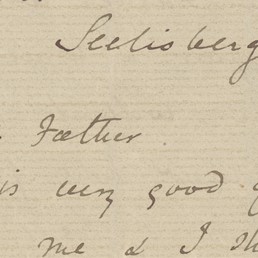 Seelisberg
Father.
is very good
me & I sh